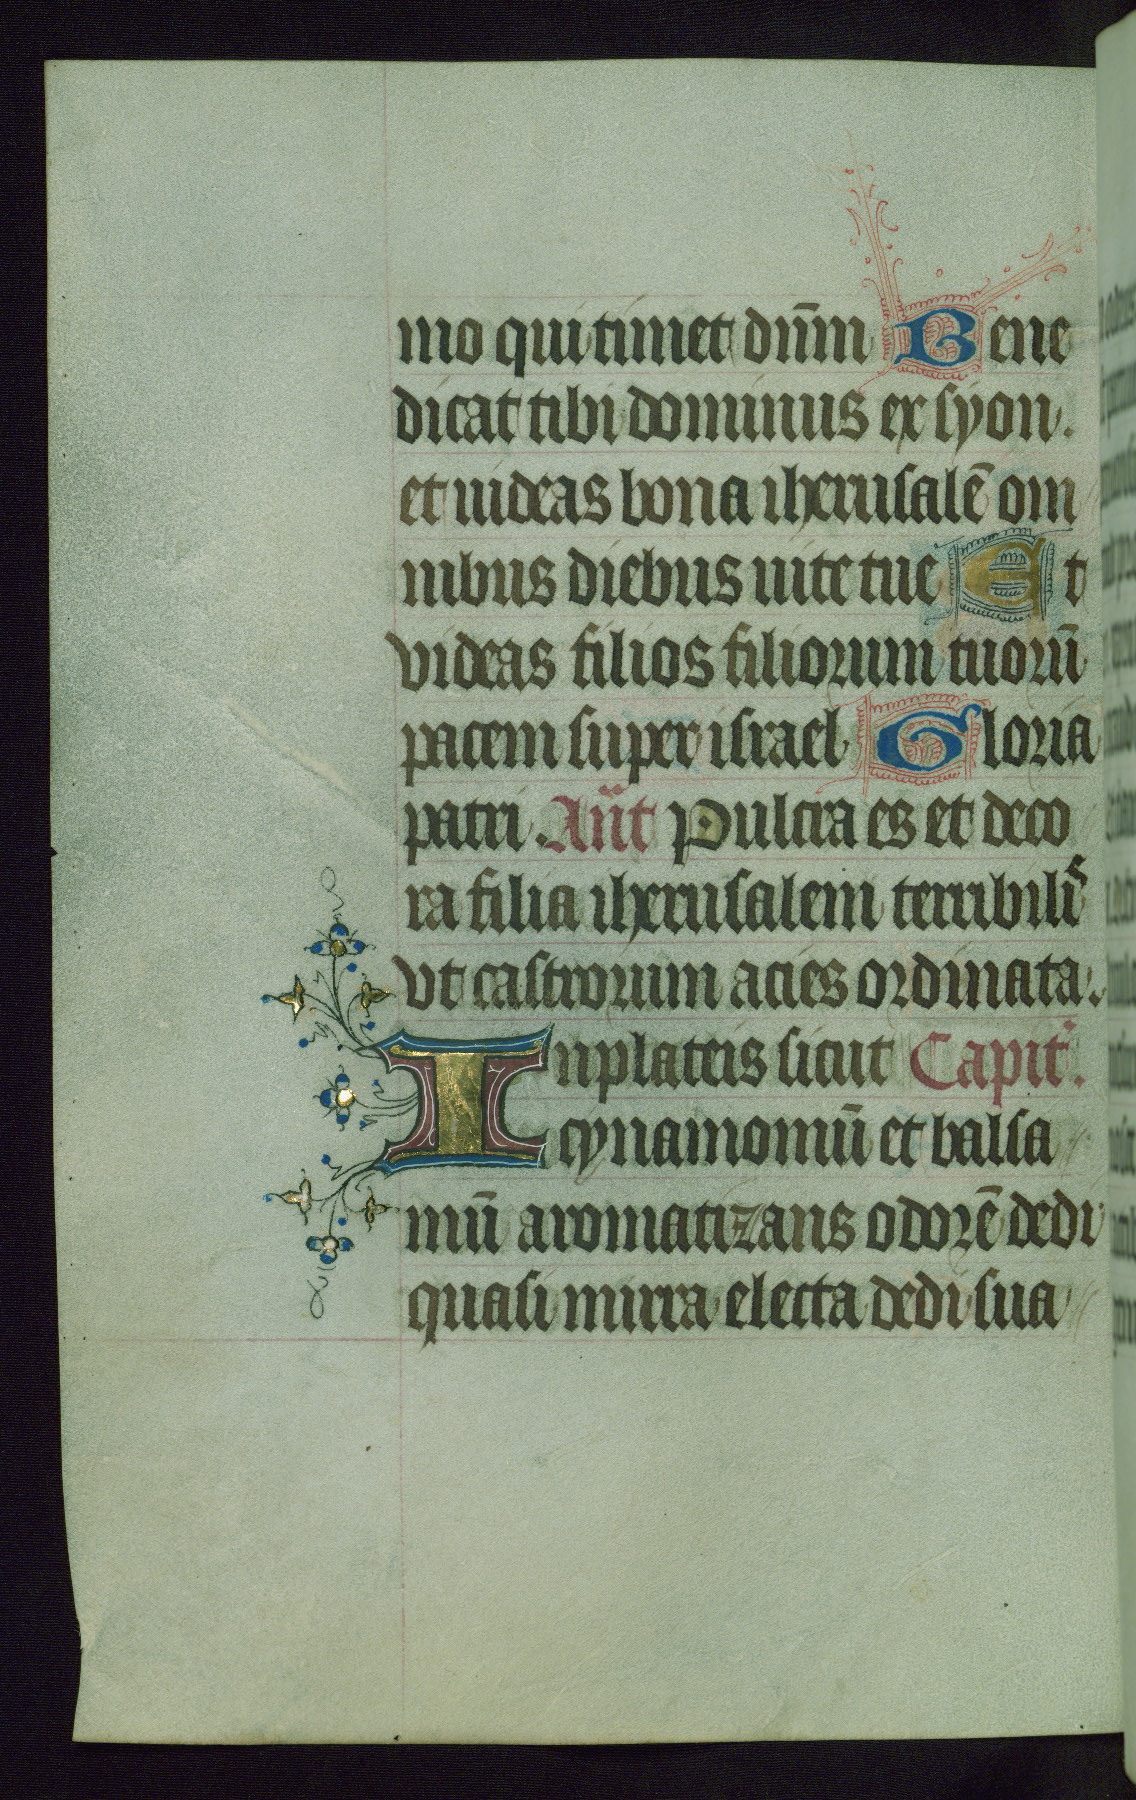 mo qui timet dn̄m Bene
dicat tibi dominus ex syon.
et uideas bona iherusalē om
nibus diebus uite tue Et
videas filios filiorum tuorū
pacem super israel Gloria
patri. Añt Pulcra es et deco
ra filia iherusalem terribilis
vt castrorum acies ordinata.
In plateis sicut Capit̄.
cynamomū et balsa
mū aromatizans odorē dedi
quasi mirra electa dedi sua